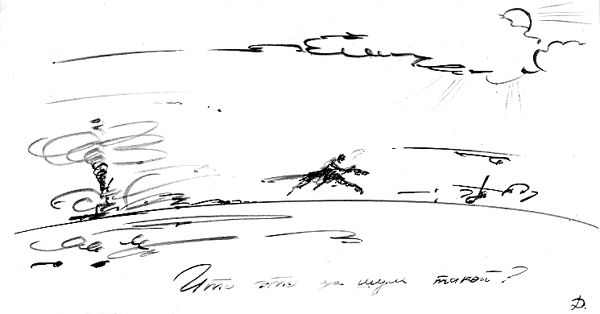 Что это за шум такой?
Д.